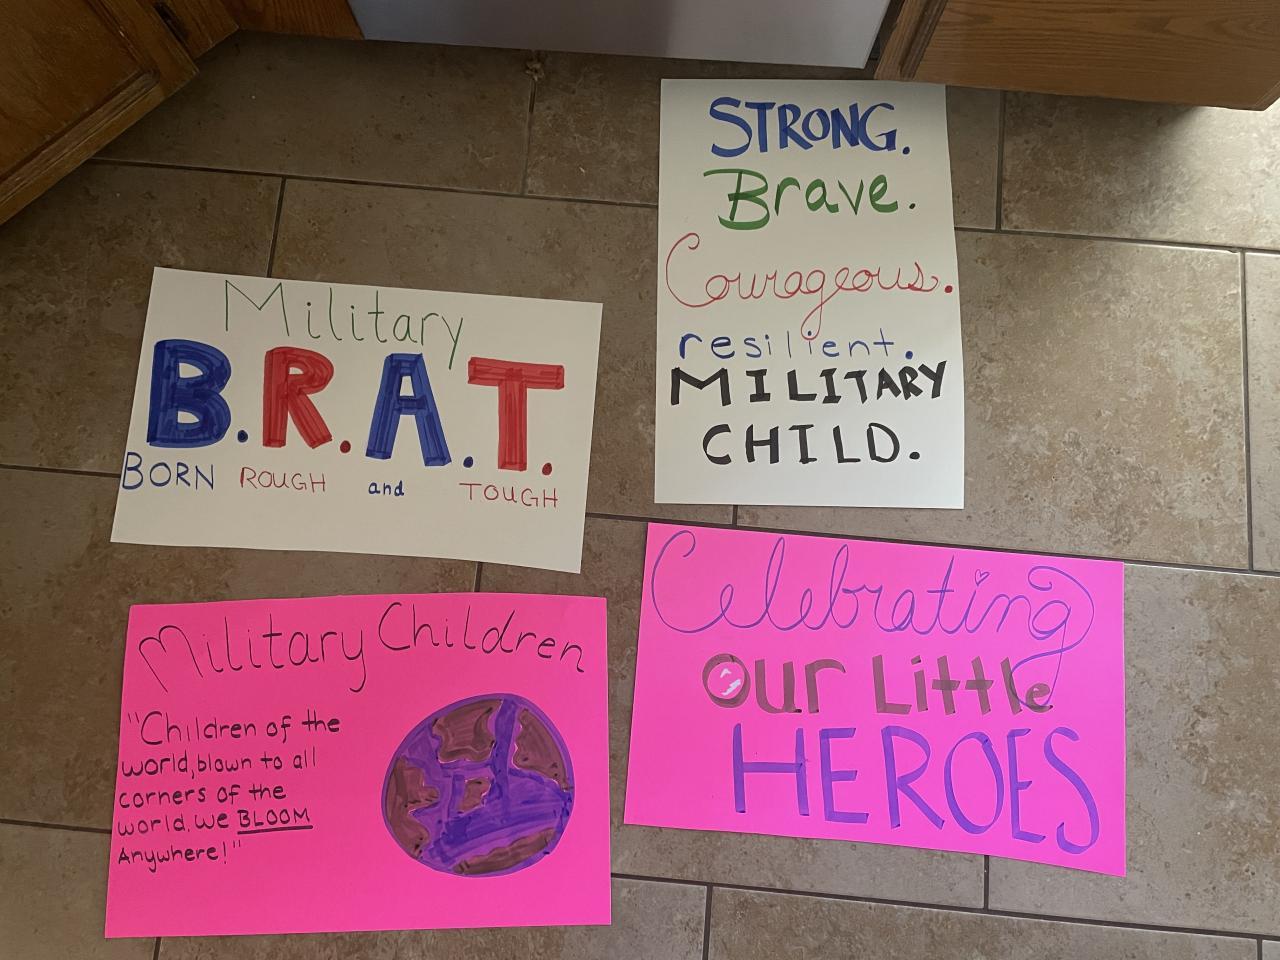 Military
B.R.A.T.
BORN ROUGH and TOUGH
STRONG.
Brave.
Courageous.
resilient.
MILITARY
CHILD.
Military Children
"Children of the
world, blown to all
corners of the
world, we BLOOM
Anywhere!"
Celebrating
Our Little
HEROES